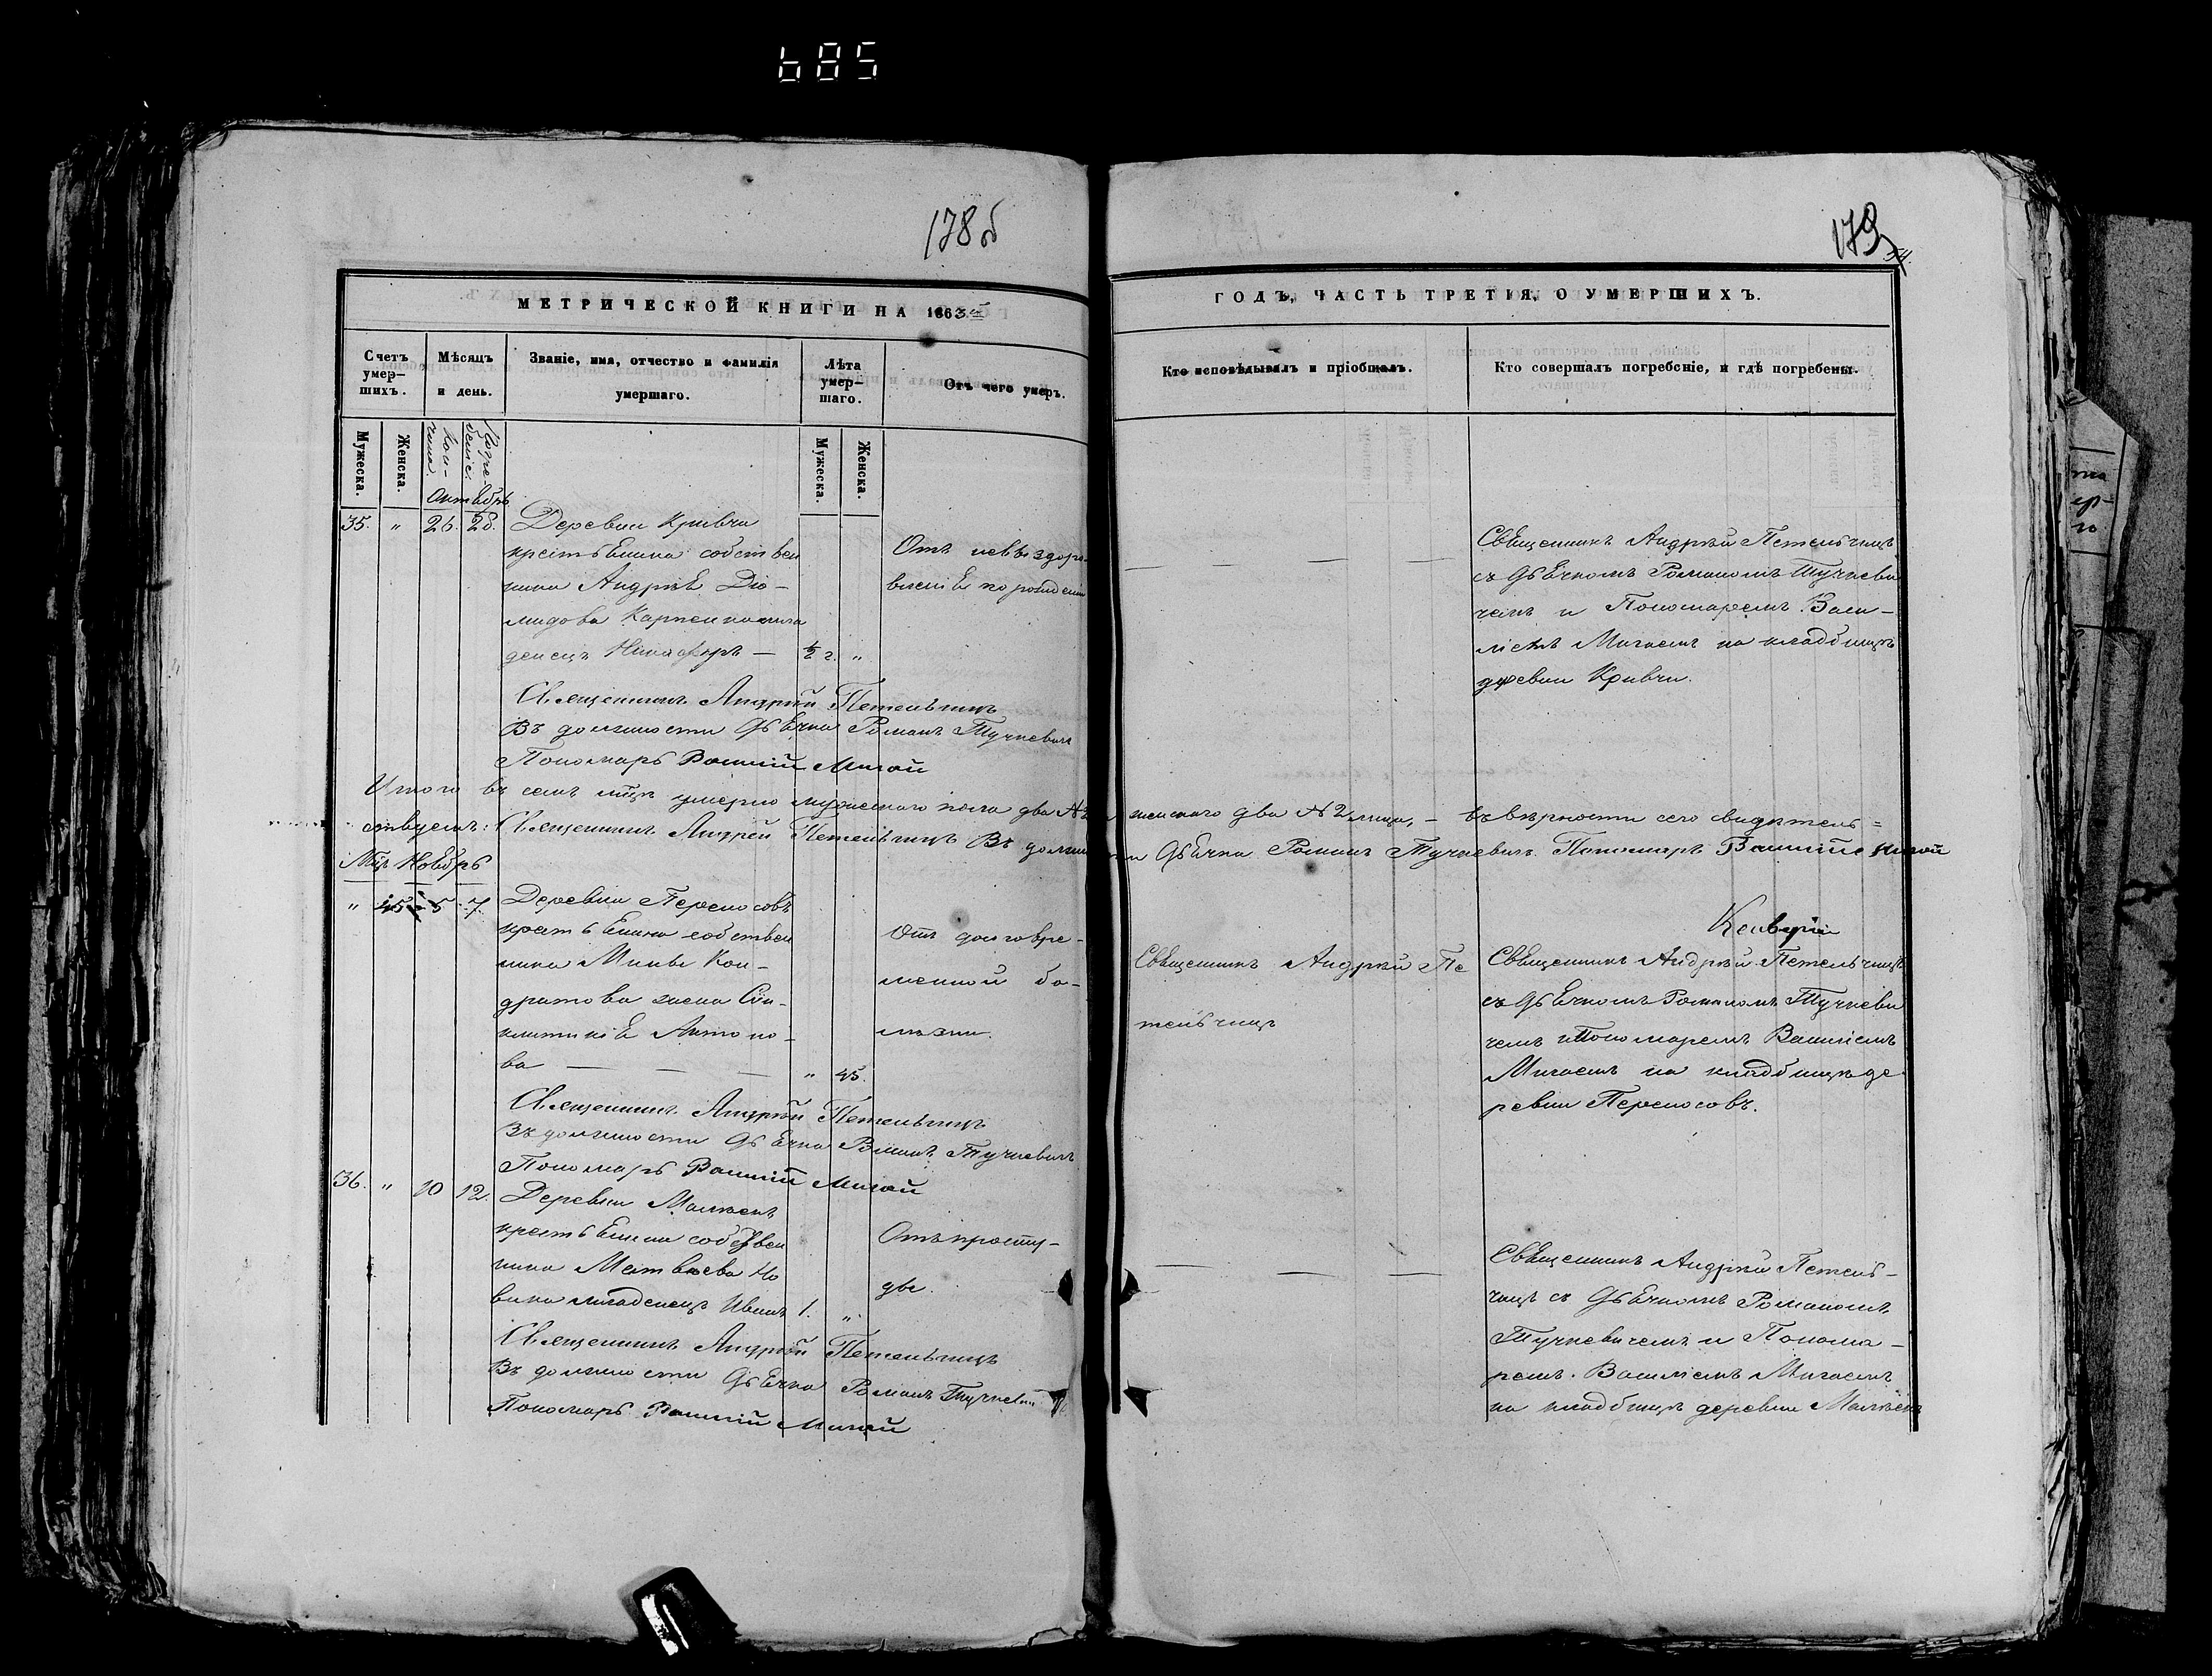 685
178 б
179
54.
МЕТРИЧЕСКОЙ КНИГИ НА 1863
ГОДЪ, ЧАСТЬ ТРЕТІЯ, О УМЕРШИХЪ.
Счетъ умер-шихъ.
Мѣсяцъ и день.
Званіе, имя, отчество и фамилія умершаго.
Лѣта умер-шаго.
Отъ чего умеръ.
Кто исповѣдывалъ и пріобщалъ.
Кто совершалъ погребеніе, и гдѣ погребены.
Мужеска.
Женска.
Кон-чина.
Погре-беніе.
Мужеска.
Женска.
Октябрь
35. " 26. 28.
Деревни Кривчи
крестьянина собствен
ника Андрея Діо-
мидова
денецъ Никифоръ — ½ г. "
Отъ невыздоро-
вленія по рожденіи
Священникъ Андрей Петельчицъ
съ Дьячкомъ Романомъ Тучкеви
чемъ и Пономаремъ Васи-
ліемъ Мигаемъ на кладбищѣ
деревни Кривчи.
Священникъ Андрей Петельчицъ
Въ должности Дьячка Романъ Тучкевичъ
Пономарь Василій Мигай
Итого въ семъ м-цѣ умерло мужескаго пола два № 2 женскаго два № 2 лица, — въ вѣрности сего свидѣтель=
ствуемъ: Священникъ Андрей Петельчицъ Въ должности Дьячка Романъ Тучкевичъ Пономарь Василій Мигай
М-цъ Ноябрь
" 45 5 7.
Деревни Переносовъ
крестьянина собствен
ника Мины Кон-
дратова жена Син-
клитикія Антоно-
ва — — — " 45.
Отъ долговре-
менной бо-
лѣзни.
Священникъ Андрей Пе
тельчицъ
Священникъ Андрей Петельчицъ
съ Дьячкомъ Романомъ Тучкеви
чемъ и Пономаремъ Василіемъ
Мигаемъ на кладбищѣ де
ревни Переносовъ.
Священникъ Андрей Петельчицъ
Въ должности Дьячка Романъ Тучкевичъ
Пономарь Василій Мигай
36. " 10 12.
Деревни
крестьянина собствен
ника Матвѣева Но
вика младенецъ Иванъ 1. "
Отъ просту-
ды.
Священникъ Андрей Петель-
чицъ съ Дьячкомъ Романомъ
Тучкевичемъ и Понома-
ремъ Василіемъ Мигаемъ
на кладбищѣ деревни
Священникъ Андрей Петельчицъ
Въ должности Дьячка Романъ Тучкевичъ
Пономарь Василій Мигай